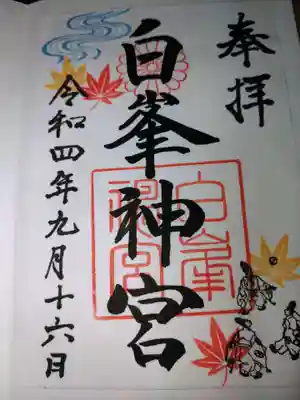 奉拝
白峯神宮
白峯
神宮
令和四年九月十六日